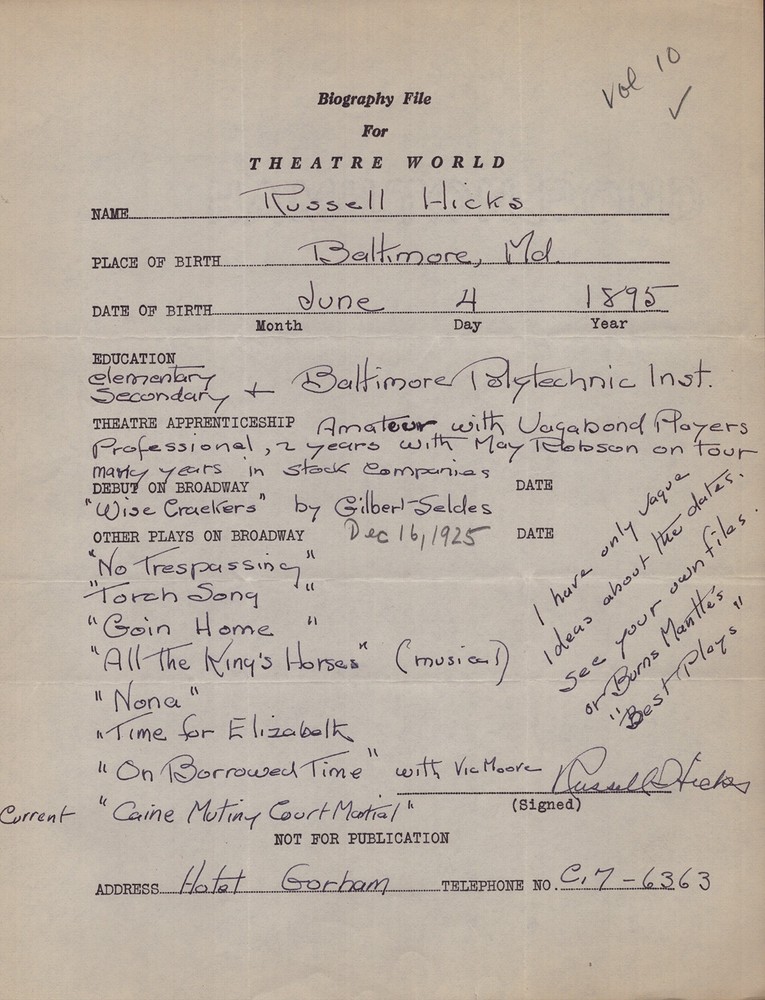 Vol 10 ✓
Biography File
For
THEATRE WORLD
NAME Russell Hicks
PLACE OF BIRTH Baltimore, Md.
DATE OF BIRTH June 4 1895
Month Day Year
EDUCATION
elementary
Secondary + Baltimore Polytechnic Inst.
THEATRE APPRENTICESHIP Amateur with Vagabond Players
Professional, 2 years with May Robson on tour
many years in stock companies
DEBUT ON BROADWAY DATE
"Wise Crackers" by Gilbert Seldes
OTHER PLAYS ON BROADWAY Dec 16, 1925 DATE
"No Trespassing"
"Torch Song"
"Goin Home"
"All The King's Horses" (musical)
"Nona"
"Time for Elizabeth
"On Borrowed Time" with Vic Moore
Current "Caine Mutiny Court Martial"
I have only vague
Ideas about the dates.
See your own files.
or Burns Mantle's
"Best Plays"
Russell Hicks
(Signed)
NOT FOR PUBLICATION
ADDRESS Hotel Gorham TELEPHONE NO. C.7-6363